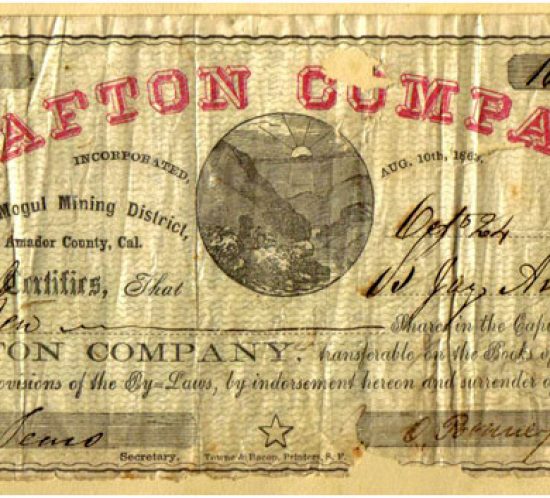 AFTON COMPA
INCORPORATED, AUG. 10th, 1863.
Mogul Mining District,
Amador County, Cal.
Oct 24
Certifies, That Jay
Shares in the Capi
TON COMPANY, transferable on the Books o
ovisions of the By=Laws, by indorsement hereon and surrender o
Secretary. Towne & Bacon, Printers, S. F.